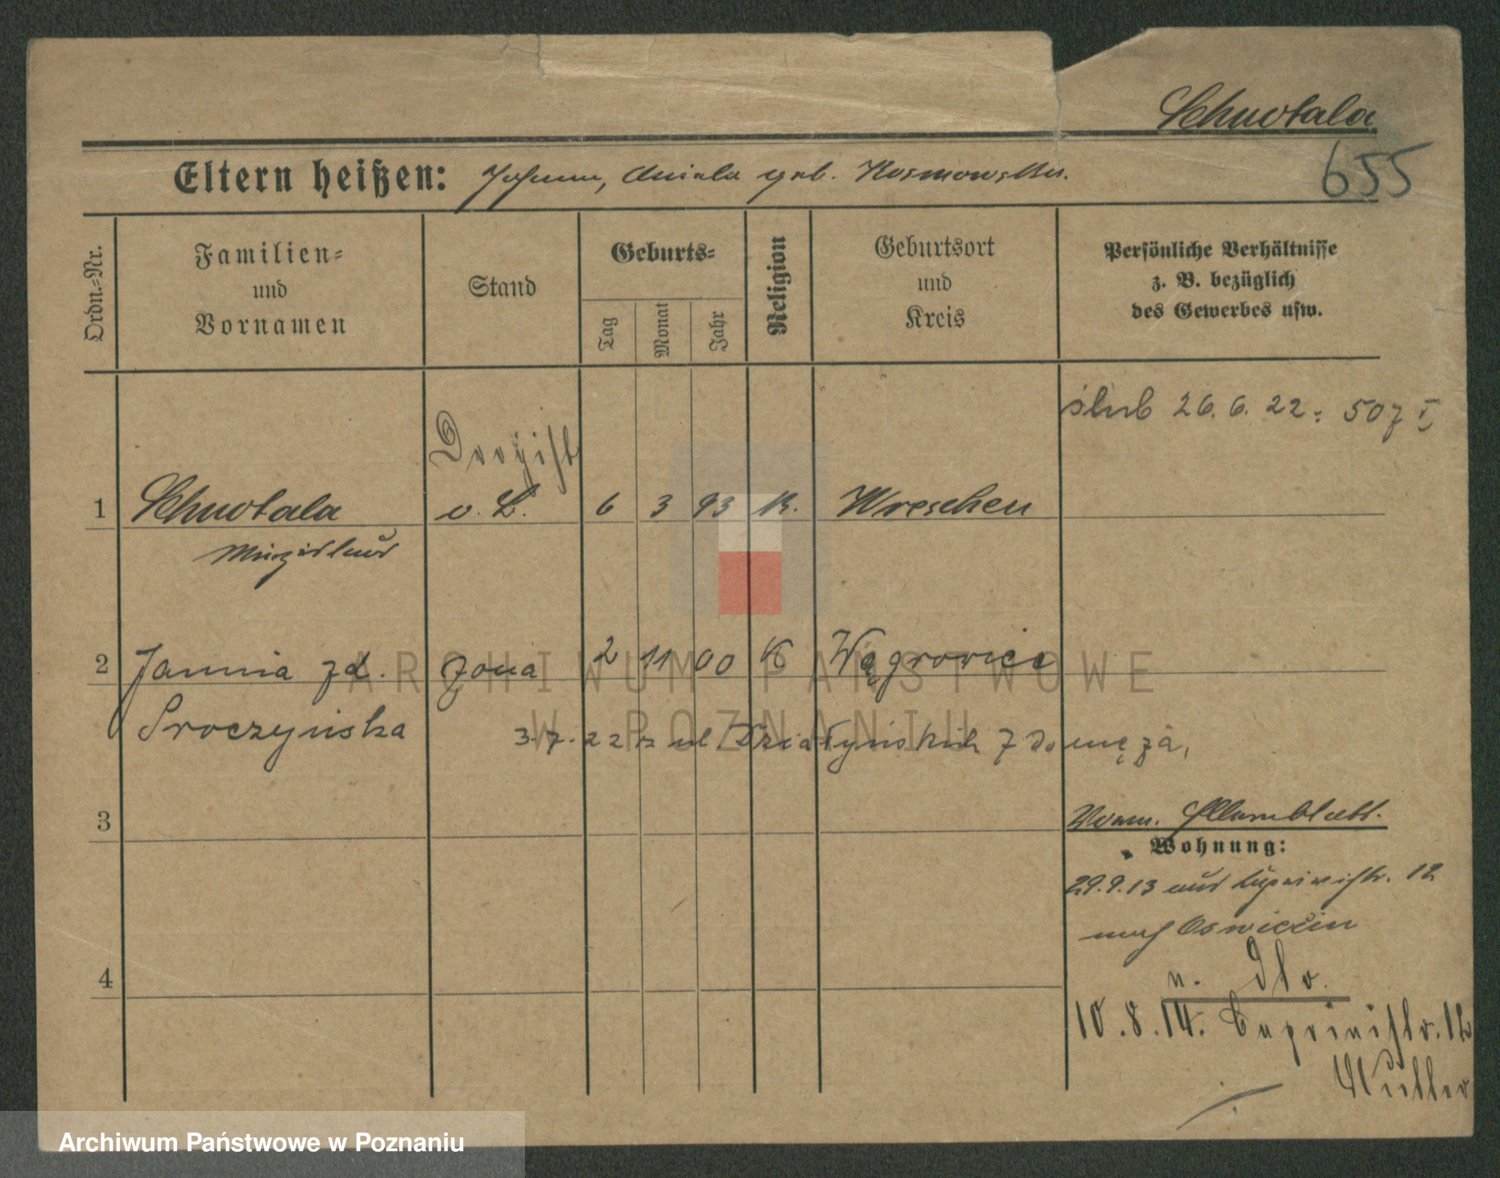 Schwotala
Eltern heißen: Johann, Aniela geb. Kosmowska.
655
Ordn.=Nr.
Familien=
und
Vornamen
Stand
Geburts=
Tag
Monat
Jahr
Religion
Geburtsort
und
Kreis
Persönliche Verhältnisse
z. B. bezüglich
des Gewerbes usw.
ślub 26. 6. 22 = 507 I
Drogist
1 Schwotala v. L. 6 3 93 K. Wreschen
2 Janina zd. żona 2 11 00 K Wągrowiec
Sroczyńska
3.7.22 z ul Działyńskich 7 do męża,
3
Wohnung:
29.9.13 12
nach Oswiecin
n.
4
10.8.14. 12
Mutter
ARCHIWUM PAŃSTWOWE
W POZNANIU
Archiwum Państwowe w Poznaniu